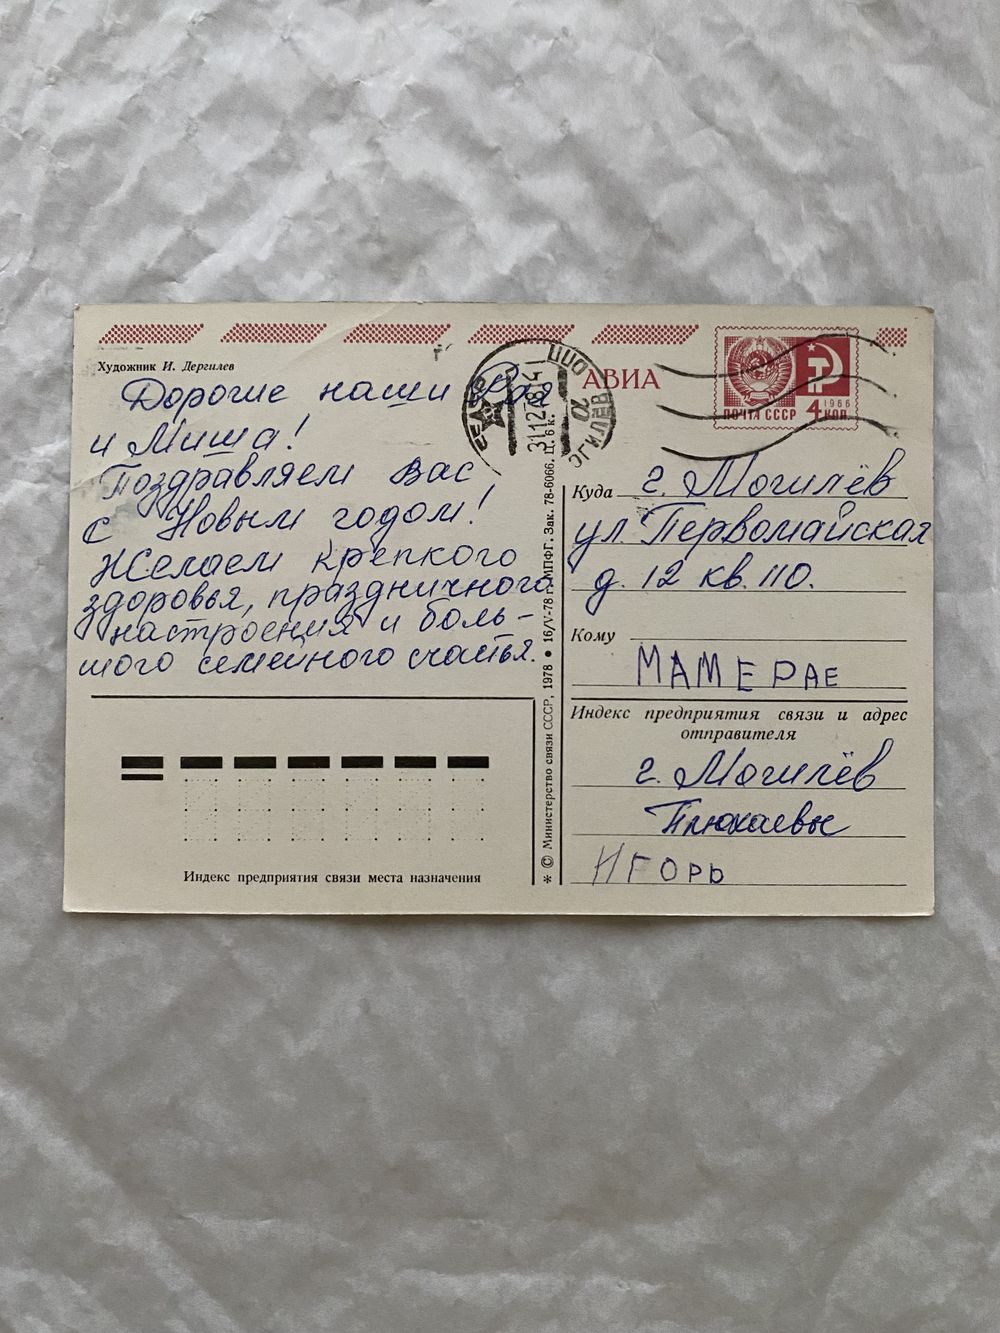 Художник И. Дергилев
Дорогие наши Рая
и Миша!
Поздравляем Вас
с Новым годом!
Желаем крепкого
здоровья, праздничного
настроения и боль-
шого семейного счастья.
Индекс предприятия связи места назначения
* © Министерство связи СССР, 1978 • 16/V-78 г. МПФГ. Зак. 78-6066. Ц. 6 к.
31127814
АВИА
ПОЧТА СССР 4 КОП
1966
Куда г. Могилёв
ул. Первомайская
д. 12 кв. 110.
Кому
МАМЕ РАЕ
Индекс предприятия связи и адрес
отправителя
г. Могилёв
ИГОРЬ